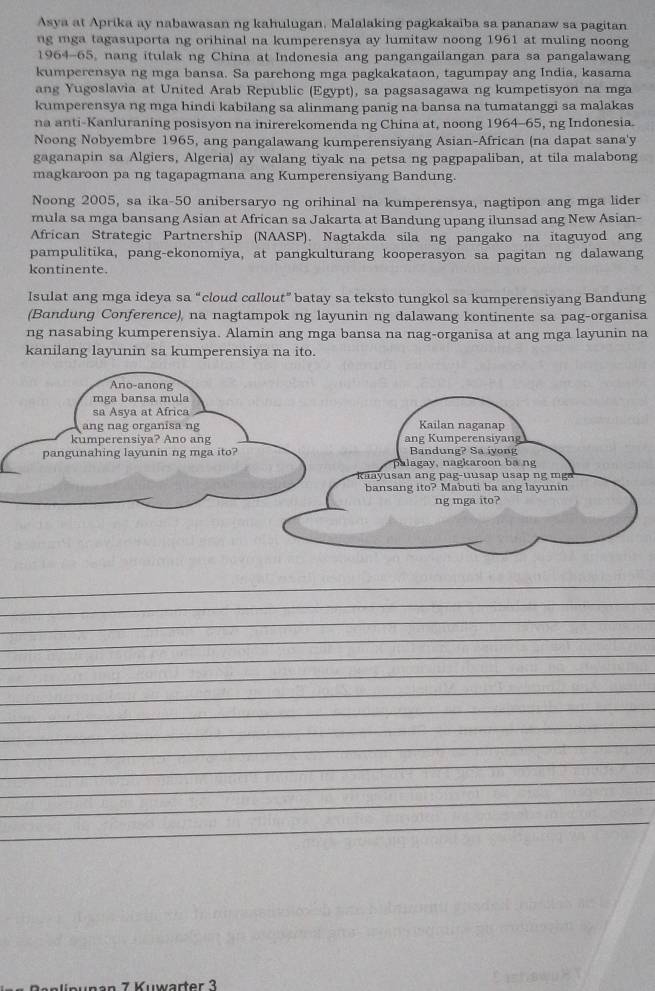 Asya at Aprika ay nabawasan ng kahulugan. Malalaking pagkakaiba sa pananaw sa pagitan
ng mga tagasuporta ng orihinal na kumperensya ay lumitaw noong 1961 at muling noong
1964-65, nang itulak ng China at Indonesia ang pangangailangan para sa pangalawang
kumperensya ng mga bansa. Sa parehong mga pagkakataon, tagumpay ang India, kasama
ang Yugoslavia at United Arab Republic (Egypt), sa pagsasagawa ng kumpetisyon na mga
kumperensya ng mga hindi kabilang sa alinmang panig na bansa na tumatanggi sa malakas
na anti-Kanluraning posisyon na inirerekomenda ng China at, noong 1964-65, ng Indonesia.
Noong Nobyembre 1965, ang pangalawang kumperensiyang Asian-African (na dapat sana'y
gaganapin sa Algiers, Algeria) ay walang tiyak na petsa ng pagpapaliban, at tila malabong
magkaroon pa ng tagapagmana ang Kumperensiyang Bandung.
Noong 2005, sa ika-50 anibersaryo ng orihinal na kumperensya, nagtipon ang mga lider
mula sa mga bansang Asian at African sa Jakarta at Bandung upang ilunsad ang New Asian-
African Strategic Partnership (NAASP). Nagtakda sila ng pangako na itaguyod ang
pampulitika, pang-ekonomiya, at pangkulturang kooperasyon sa pagitan ng dalawang
kontinente.
Isulat ang mga ideya sa “cloud callout” batay sa teksto tungkol sa kumperensiyang Bandung
(Bandung Conference), na nagtampok ng layunin ng dalawang kontinente sa pag-organisa
ng nasabing kumperensiya. Alamin ang mga bansa na nag-organisa at ang mga layunin na
kanilang layunin sa kumperensiya na ito.
Ano-anong
mga bansa mula
sa Asya at Africa
ang nag organisa ng
kumperensiya? Ano ang
pangunahing layunin ng mga ito?
Kailan naganap
ang Kumperensiyang
Bandung? Sa iyong
palagay, nagkaroon ba ng
kaayusan ang pag-uusap usap ng mga
bansang ito? Mabuti ba ang layunin
ng mga ito?
7 Kuwarter 3